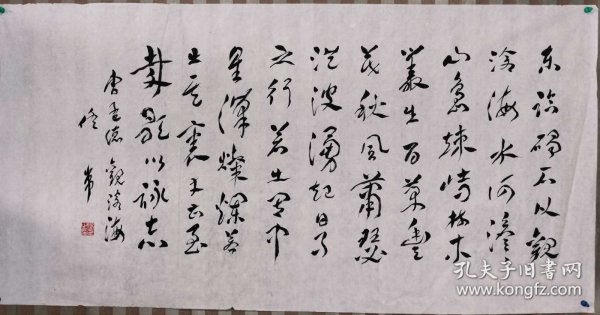 东临碣石以观
沧海水何澹々
山岛竦峙树木
丛生百草丰
茂秋风萧瑟
洪波涌起日月
之行若出其中
星汉灿烂若
出其里幸甚至
哉歌以咏志
曹孟德观沧海
孔夫子旧书网
www.kongfz.com